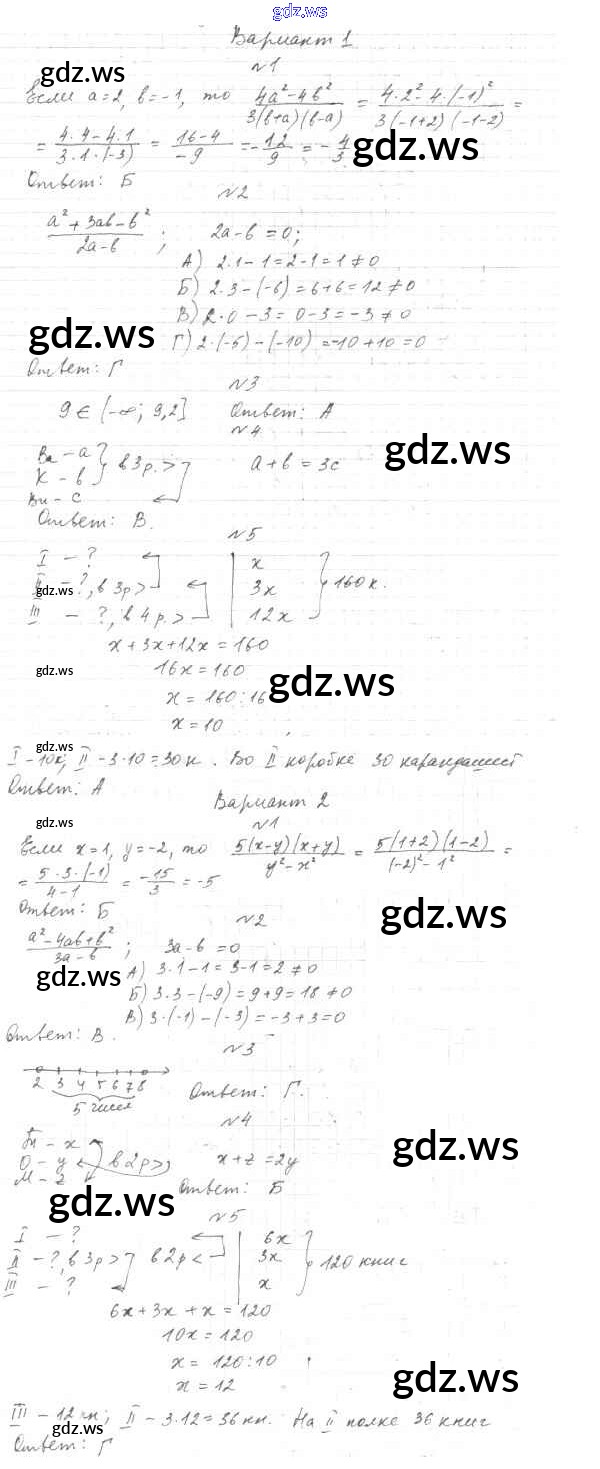 gdz.ws
Вариант 1
gdz.ws
№1
Если a=2, b=-1, то (4a²-4b²)/(3(b+a)(b-a)) = (4·2²-4·(-1)²)/(3(-1+2)(-1-2)) =
= (4·4-4·1)/(3·1·(-3)) = (16-4)/(-9) = -12/9 = -4/3
gdz.ws
Ответ: Б
№2
(a²+3ab-b²)/(2a-b) ; 2a-b=0;
А) 2·1-1=2-1=1≠0
Б) 2·3-(-6)=6+6=12≠0
В) 2·0-3=0-3=-3≠0
gdz.ws
Г) 2·(-5)-(-10)=-10+10=0
Ответ: Г
№3
9∈(-∞; 9,2] Ответ: А
№4
gdz.ws
Ва - a
К - b } в 3 р. > a+b=3c
Ви - c
Ответ: В.
№5
I - ? | x
II - ?, в 3р > | 3x } 160 к.
gdz.ws
III - ?, в 4 р. > | 12x
x+3x+12x=160
16x=160
gdz.ws
gdz.ws
x=160:16
x=10
gdz.ws
I - 10к; II - 3·10=30к. Во II коробке 30 карандашей
Ответ: А
Вариант 2
gdz.ws
№1
Если x=1, y=-2, то (5(x-y)(x+y))/(y²-x²) = (5(1+2)(1-2))/((-2)²-1²) =
= (5·3·(-1))/(4-1) = -15/3 = -5
Ответ: Б
gdz.ws
№2
(a²-4ab+b²)/(3a-b) ; 3a-b=0
gdz.ws
А) 3·1-1=3-1=2≠0
Б) 3·3-(-9)=9+9=18≠0
В) 3·(-1)-(-3)=-3+3=0
Ответ: В.
№3
2 3 4 5 6 7 8
5 чисел
Ответ: Г.
№4
gdz.ws
Тп - x
О - y в 2р > x+z=2y
М - z
gdz.ws
Ответ: Б
№5
I - ? | 6x
II - ?, в 3р > в 2р < | 3x } 120 книг
III - ? | x
6x+3x+x=120
10x=120
x=120:10
gdz.ws
x=12
III - 12 кн; II - 3·12=36 кн. На II полке 36 книг
gdz.ws
Ответ: Г